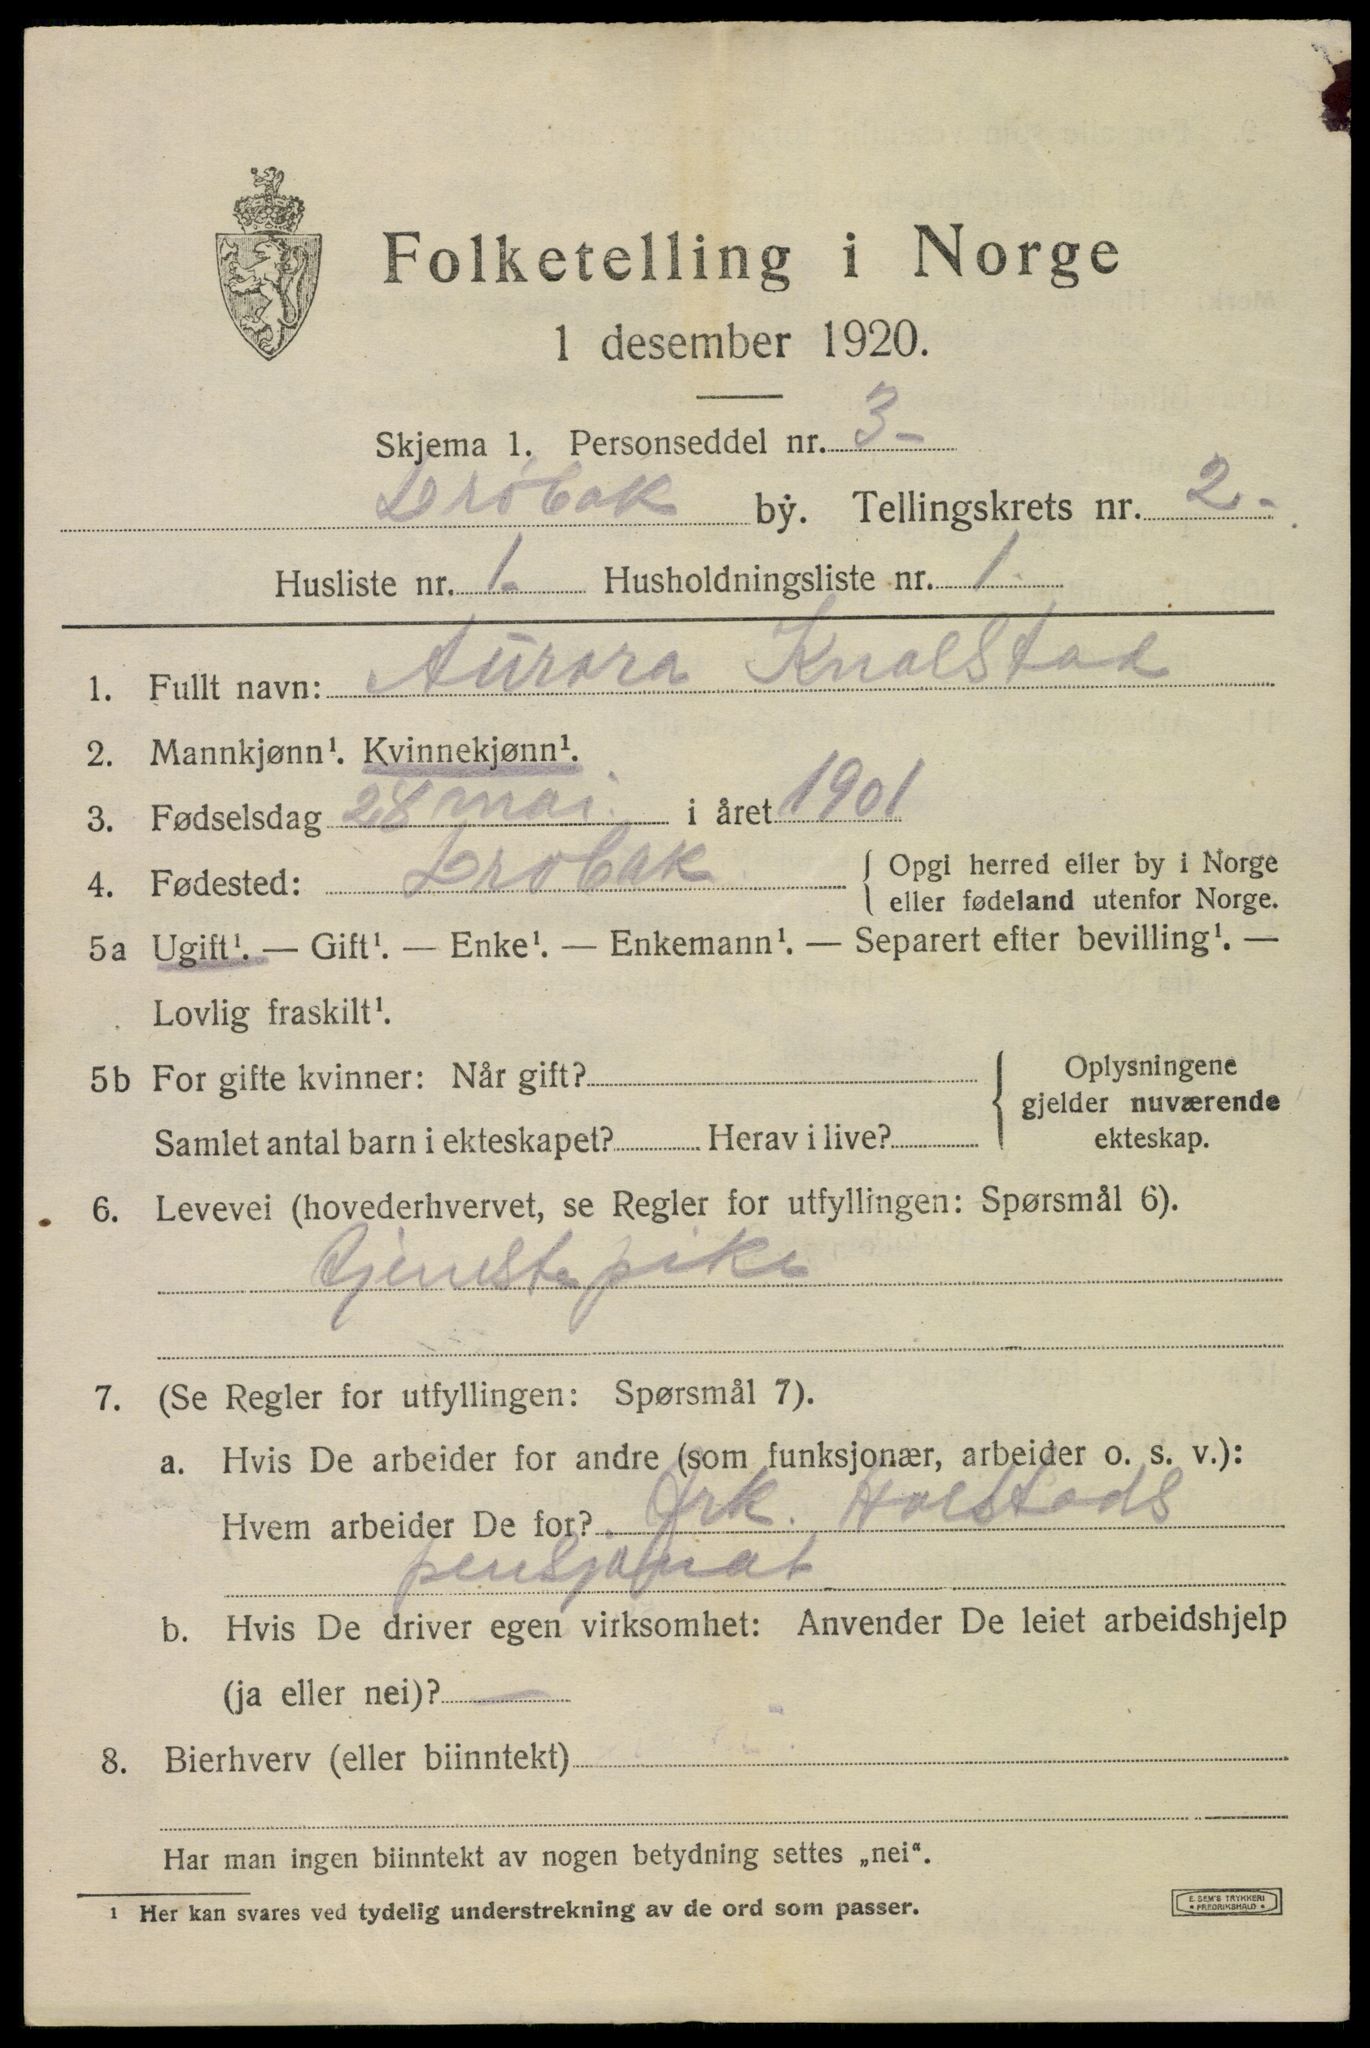 Folketelling i Norge
1 desember 1920.
Skjema 1. Personseddel nr. 3-
Drøbak by. Tellingskrets nr. 2-
Husliste nr. 1. Husholdningsliste nr. 1.
1. Fullt navn: Aurora Knalstad
2. Mannkjønn¹. Kvinnekjønn¹.
3. Fødselsdag 28 mai. i året 1901
4. Fødested: Drøbak. { Opgi herred eller by i Norge
eller fødeland utenfor Norge.
5a Ugift¹. — Gift¹. — Enke¹. — Enkemann¹. — Separert efter bevilling¹. —
Lovlig fraskilt¹.
5b For gifte kvinner: Når gift? { Oplysningene
gjelder nuværende
Samlet antal barn i ekteskapet? Herav i live? ekteskap.
6. Levevei (hovederhvervet, se Regler for utfyllingen: Spørsmål 6).
Tjenestepike
7. (Se Regler for utfyllingen: Spørsmål 7).
a. Hvis De arbeider for andre (som funksjonær, arbeider o. s. v.):
Hvem arbeider De for? Frk. Holstads
pensjonat
b. Hvis De driver egen virksomhet: Anvender De leiet arbeidshjelp
(ja eller nei)? —
8. Bierhverv (eller biinntekt)
Har man ingen biinntekt av nogen betydning settes „nei“.
¹ Her kan svares ved tydelig understrekning av de ord som passer.
E. SEM'S TRYKKERI
* FREDRIKSHALD *